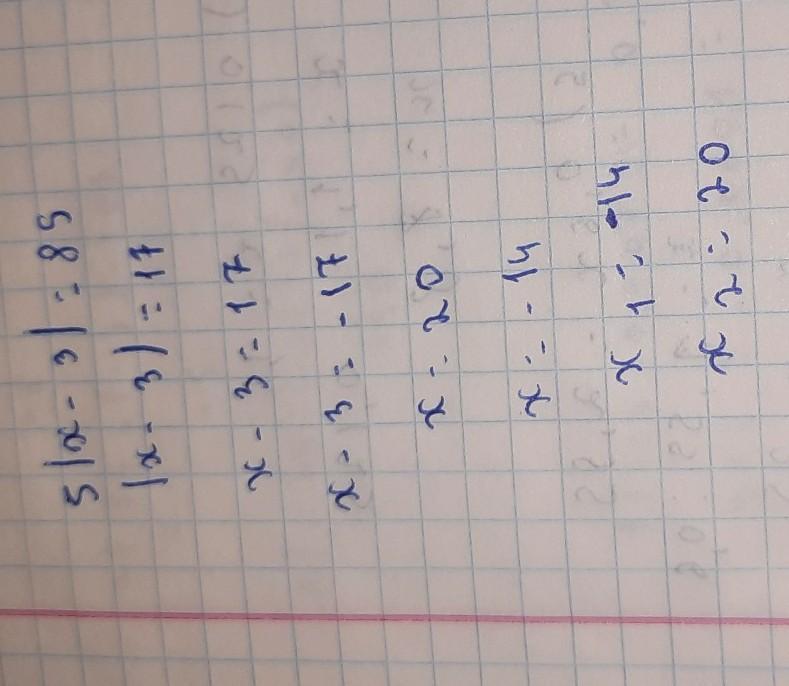 5|x-3|=85
|x-3|=17
x-3=17
x-3=-17
x=20
x=-14
x1=-14
x2=20